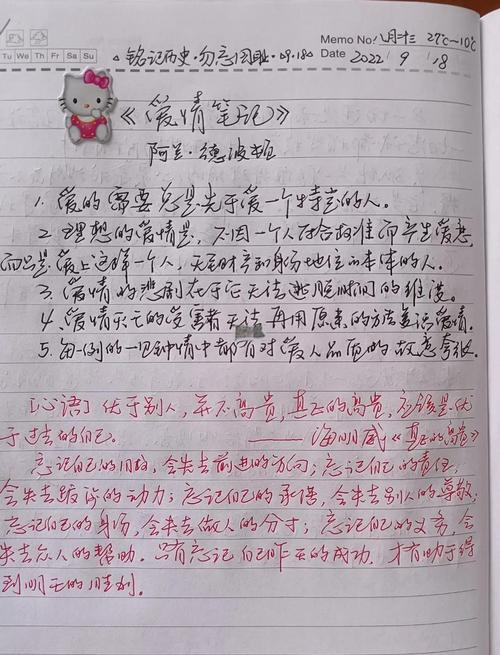 Memo No. 八月廿三 27℃~10℃
Tu We Th Fr Sa Su
铭记历史·勿忘国耻·09.18
Date 2022 9 18
《爱情笔记》
阿兰·德波顿
1. 爱的需要总是先于爱一个特定的人。
2. 理想的爱情是，不因一个人符合标准而产生爱意，
而只是爱上这样一个人，无关财产和身份地位的本体的人。
3. 爱情的悲剧在于它无法逃脱时间的维度。
4. 爱情灭亡的受害者无法再用原来的方法复活爱情。
5. 每一例的一见钟情中都有对爱人品质的故意夸张。
［心语］优于别人，并不高贵，真正的高贵，应该是优
于过去的自己。
——海明威《真正的高贵》
忘记自己的目标，会失去前进的方向；忘记自己的责任，
会失去跋涉的动力；忘记自己的承诺，会失去别人的尊敬；
忘记自己的身份，会失去做人的分寸；忘记自己的义务，会
失去众人的帮助。只有忘记自己昨天的成功，才有助于得
到明天的胜利。